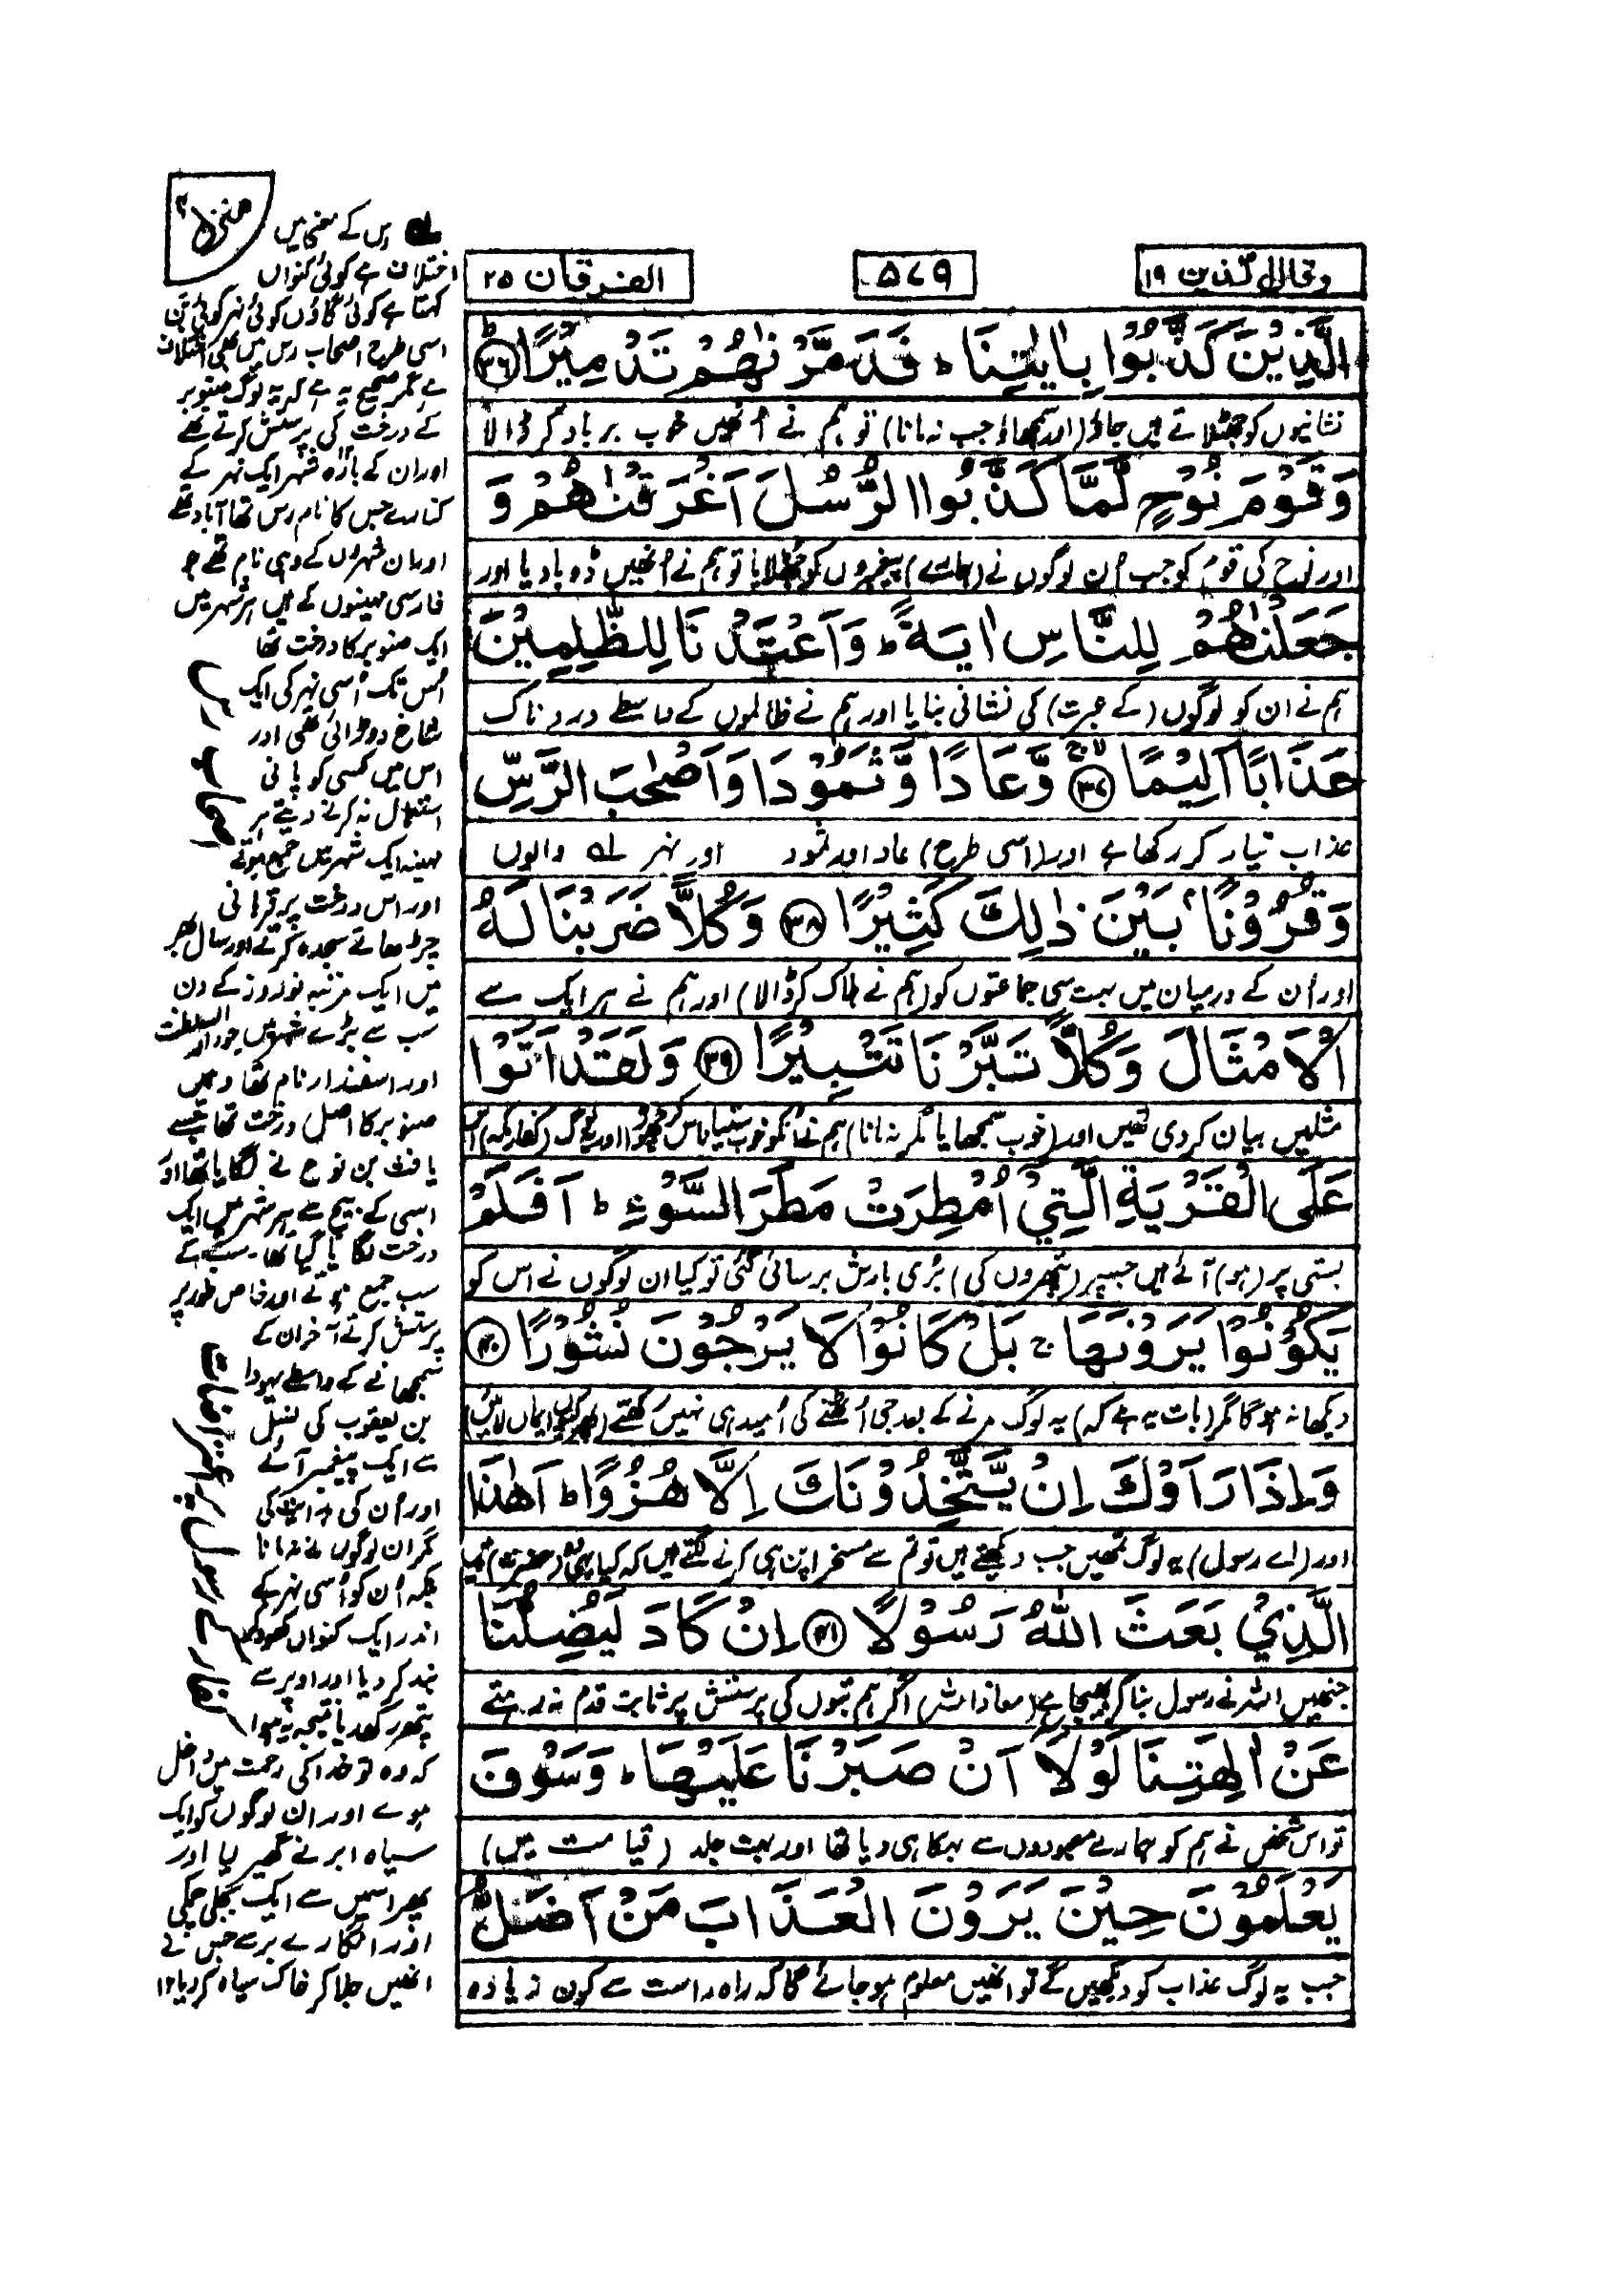 وقال الذین ۱۹
۵۷۹
الفرقان ۲۵
الَّذِیْنَ کَذَّبُوْا بِاٰیٰتِنَا ؕ فَدَمَّرْنٰهُمْ تَدْمِیْرًا ؕ ﴿۳۶﴾
نشانیوں کو جھٹلاتے ہیں جاؤ (اور سمجھاؤ جب نہ مانا) تو ہم نے اُنھیں خوب برباد کر ڈالا
وَقَوْمَ نُوْحٍ لَّمَّا کَذَّبُوا الرُّسُلَ اَغْرَقْنٰهُمْ وَ
اور نوح کی قوم کو جب اُن لوگوں نے (ہمارے) پیغمبروں کو جھٹلایا تو ہم نے اُنھیں ڈوبا دیا اور
جَعَلْنٰهُمْ لِلنَّاسِ اٰیَةً ؕ وَاَعْتَدْنَا لِلظّٰلِمِیْنَ
ہم نے ان کو لوگوں (کے عبرت) کی نشانی بنایا اور ہم نے ظالموں کے واسطے دردناک
عَذَابًا اَلِیْمًا ﴿۳۷﴾ وَّعَادًا وَّثَمُوْدَا وَاَصْحٰبَ الرَّسِّ
عذاب تیار کر رکھا ہے اور (اسی طرح) عاد اور ثمود اور نہر لہ والوں
وَقُرُوْنًۢا بَیْنَ ذٰلِکَ کَثِیْرًا ﴿۳۸﴾ وَکُلًّا ضَرَبْنَا لَهُ
اور اُن کے درمیان میں بہت سی جماعتوں کو (ہم نے ہلاک کر ڈالا) اور ہم نے ہر ایک سے
الْاَمْثَالَ وَکُلًّا تَبَّرْنَا تَتْبِیْرًا ﴿۳۹﴾ وَلَقَدْ اَتَوْا
مثلیں بیان کر دی تھیں اور (خوب سمجھایا مگر نہ مانا) ہم نے اُنکو خوب ستیاناس کر چھوڑا اور یہ لوگ (کفار مکہ) اس
عَلَی الْقَرْیَةِ الَّتِیْۤ اُمْطِرَتْ مَطَرَ السَّوْءِ ؕ اَفَلَمْ
بستی پر (ہو) آئے ہیں جسپر (پتھروں کی) بُری بارش برسائی گئی تو کیا ان لوگوں نے اس کو
یَکُوْنُوْا یَرَوْنَهَا ۚ بَلْ کَانُوْا لَا یَرْجُوْنَ نُشُوْرًا ﴿۴۰﴾
دیکھا نہ ہوگا مگر (بات یہ ہے کہ) یہ لوگ مرنے کے بعد جی اُٹھنے کی اُمید ہی نہیں رکھتے (پھر کیوں ایمان لائیں)
وَاِذَا رَاَوْکَ اِنْ یَّتَّخِذُوْنَکَ اِلَّا هُزُوًا ؕ اَهٰذَا
اور (اے رسول) یہ لوگ تمھیں جب دیکھتے ہیں تو تم سے مسخراپن ہی کرنے لگتے ہیں کہ کیا یہی وہ (حضرت) ہیں
الَّذِیْ بَعَثَ اللّٰهُ رَسُوْلًا ﴿۴۱﴾ اِنْ کَادَ لَیُضِلُّنَا
جنھیں اللہ نے رسول بنا کر بھیجا ہے (معاذ اللہ) اگر ہم بتوں کی پرستش پر ثابت قدم نہ رہتے
عَنْ اٰلِهَتِنَا لَوْلَاۤ اَنْ صَبَرْنَا عَلَیْهَا ؕ وَسَوْفَ
تو اس شخص نے ہم کو ہمارے معبودوں سے بہکا ہی دیا تھا اور بہت جلد (قیامت میں)
یَعْلَمُوْنَ حِیْنَ یَرَوْنَ الْعَذَابَ مَنْ اَضَلُّ
جب یہ لوگ عذاب کو دیکھیں گے تو انھیں معلوم ہو جائے گا کہ راہ راست سے کون زیادہ
منزل ۴
لہ اس کے معنی میں
اختلاف ہے کوئی کنواں
کہتا ہے کوئی گاؤں کوئی نہر کوئی بن
اسی طرح اصحاب رس میں بھی اختلاف
ہے مگر صحیح یہ ہے کہ یہ لوگ صنوبر
کے درخت کی پرستش کرتے تھے
اور ان کے بارہ شہر ایک نہر کے
کنارے جس کا نام رس تھا آباد تھے
اور ان شہروں کے وہی نام تھے جو
فارسی مہینوں کے ہیں ہر شہر میں
ایک صنوبر کا درخت تھا
اُس تک اُسی نہر کی ایک
شاخ دوڑائی تھی اور
اس میں کسی کو پانی
استعمال نہ کرنے دیتے ہر
مہینہ ایک شہر میں جمع ہوتے
اور اس درخت پر قربانی
چڑھاتے سجدہ کرتے اور سال بھر
میں ایک مرتبہ نوروز کے دن
سب سے بڑے شہر میں جو دار السلطنت
اور اسفندار نام تھا وہیں
صنوبر کا اصل درخت تھا جسے
یافث بن نوح نے لگایا تھا اور
اسی کے بیج سے ہر شہر میں ایک
درخت لگایا گیا تھا۔ سب کے
سب جمع ہوتے اور خاص طور پر
پرستش کرتے آخر ان کے
سمجھانے کے واسطے یہودا
بن یعقوب کی نسل
سے ایک پیغمبر آئے
اور اُن کی ہدایت کی
مگر ان لوگوں نے نہ مانا
بلکہ اُن کو اُسی نہر کے
اندر ایک کنواں کھود کے
بند کر دیا اور اوپر سے
پتھر رکھدیا نتیجہ یہ ہوا
کہ وہ تو خدا کی رحمت میں داخل
ہوے اور ان لوگوں کو ایک
سیاہ ابر نے گھیر لیا اور
پھر اسمیں سے ایک بجلی چمکی
اور انگارے برسے جس نے
انھیں جلا کر خاک سیاہ کر دیا ۱۲
اصحاب رس
کفار کے رسول پر اعتراضات